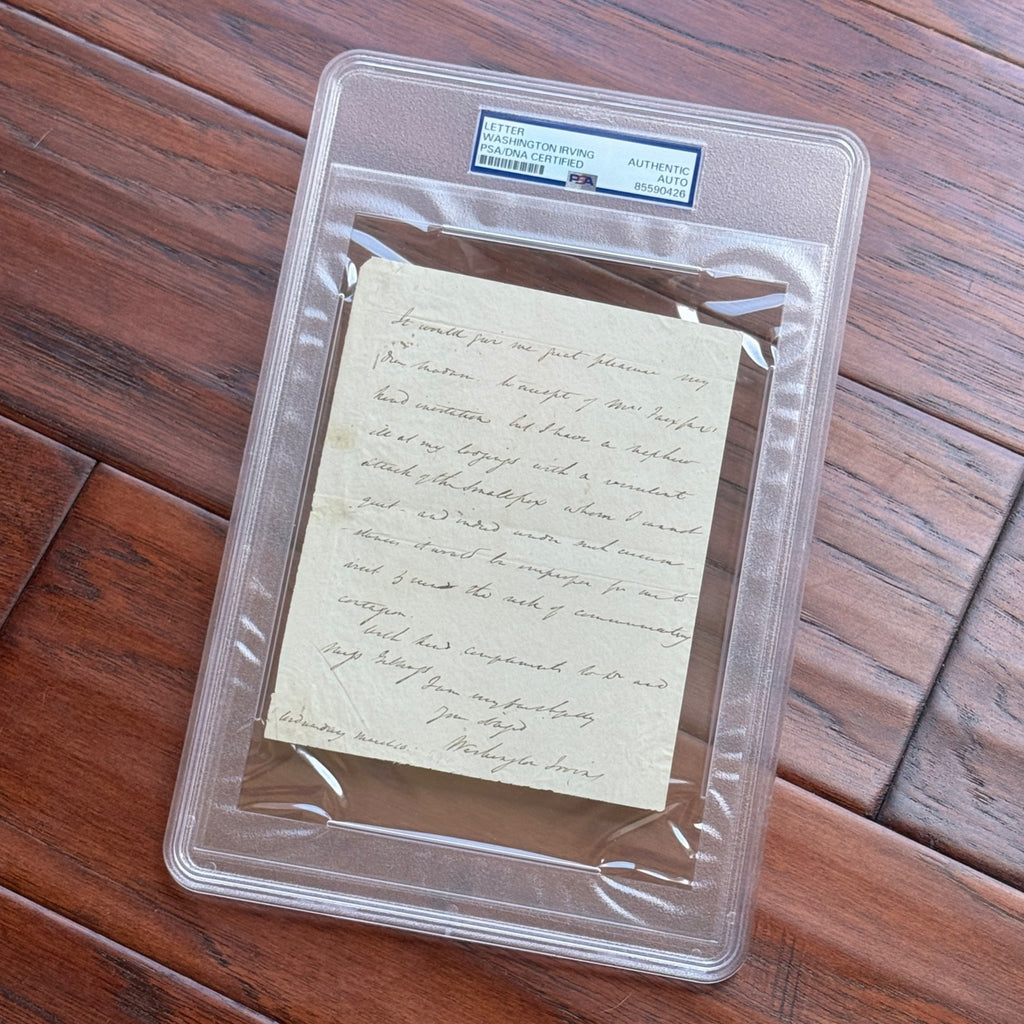 LETTER
WASHINGTON IRVING
PSA/DNA CERTIFIED
AUTHENTIC
AUTO
85590426
PSA
It would give me great pleasure my
Dear Madam to accept of Mrs
kind invitation but I have a nephew
ill at my lodgings with a virulent
attack of the Smallpox whom I cannot
quit - and indeed under such circum-
stances it would be improper for me to
the risk of communicating
contagion
With kind compliments to Dr and
I am very
Washington Irving
Wednesday March